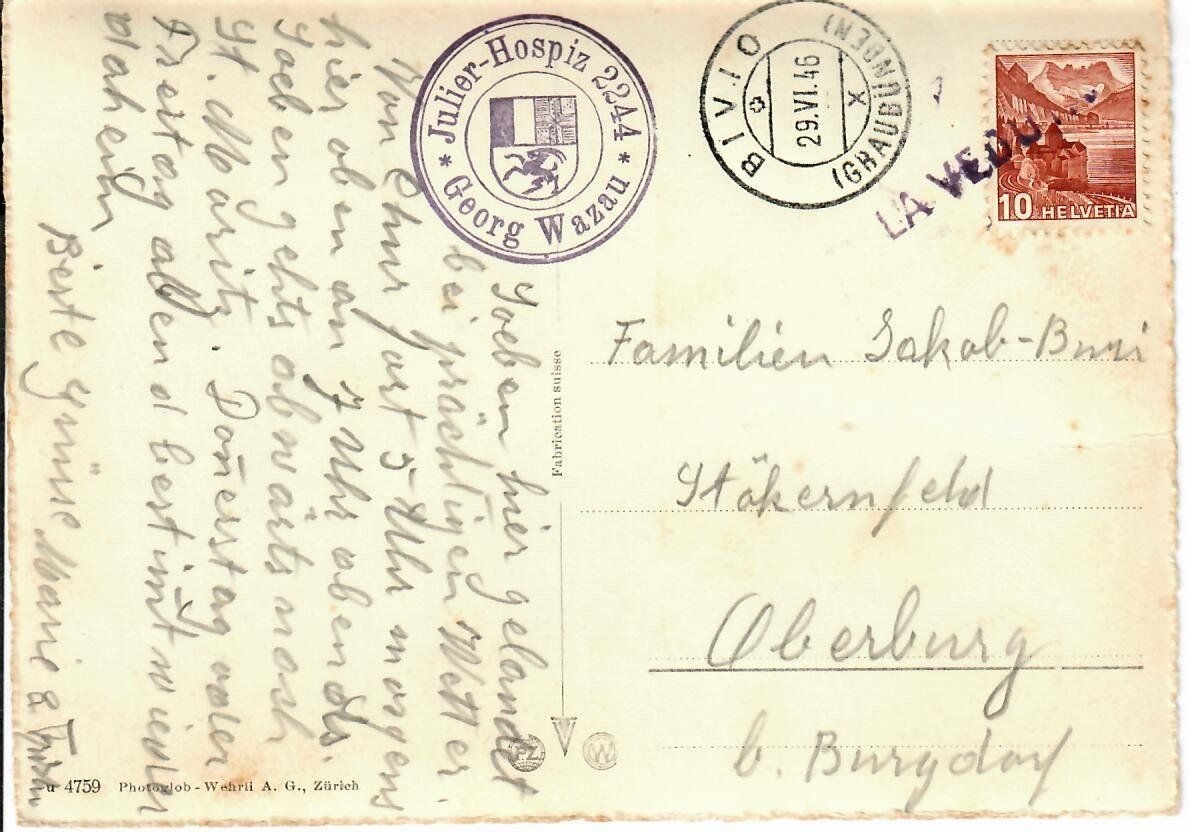 Julier-Hospiz 2244
* Georg Wazau *
BIVIO
(GRAUBÜNDEN)
29.VI.46
X
LA VEDU
10 HELVETIA
Soeben hier gelandet
bei prächtigen Wetter
Von Chur fort 5 Uhr morgens
hier oben an 7 Uhr abends.
Soeben gehts abwärts nach
St. Moritz. Donerstag oder
Freitag abend bestimt wieder
daheim
Beste Grüsse Marie &
Fabrication suisse
Familien Jakob-
Stökernfeld
Oberburg
b. Burgdorf
PZ
W
4759 Photoglob-Wehrli A. G., Zürich